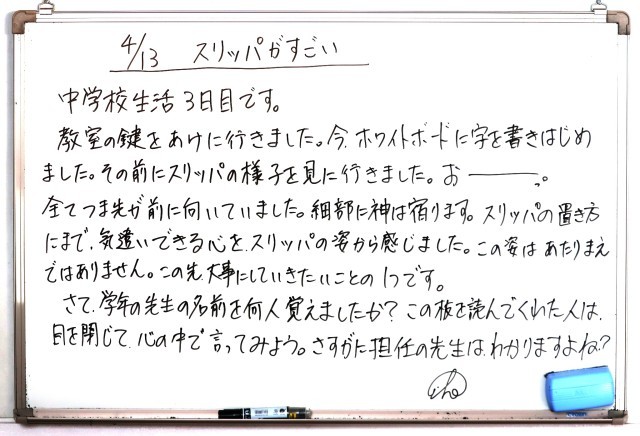 4/13 スリッパがすごい
中学校生活3日目です。
教室の鍵をあけに行きました。今、ホワイトボードに字を書きはじめ
ました。その前にスリッパの様子を見に行きました。お――――っ。
全てつま先が前に向いていました。細部に神は宿ります。スリッパの置き方
にまで、気遣いできる心を、スリッパの姿から感じました。この姿はあたりまえ
ではありません。この先大事にしていきたいことの1つです。
さて、学年の先生の名前を何人覚えましたか?この板を読んでくれた人は、
目を閉じて、心の中で言ってみよう。さすがに担任の先生は、わかりますよね?